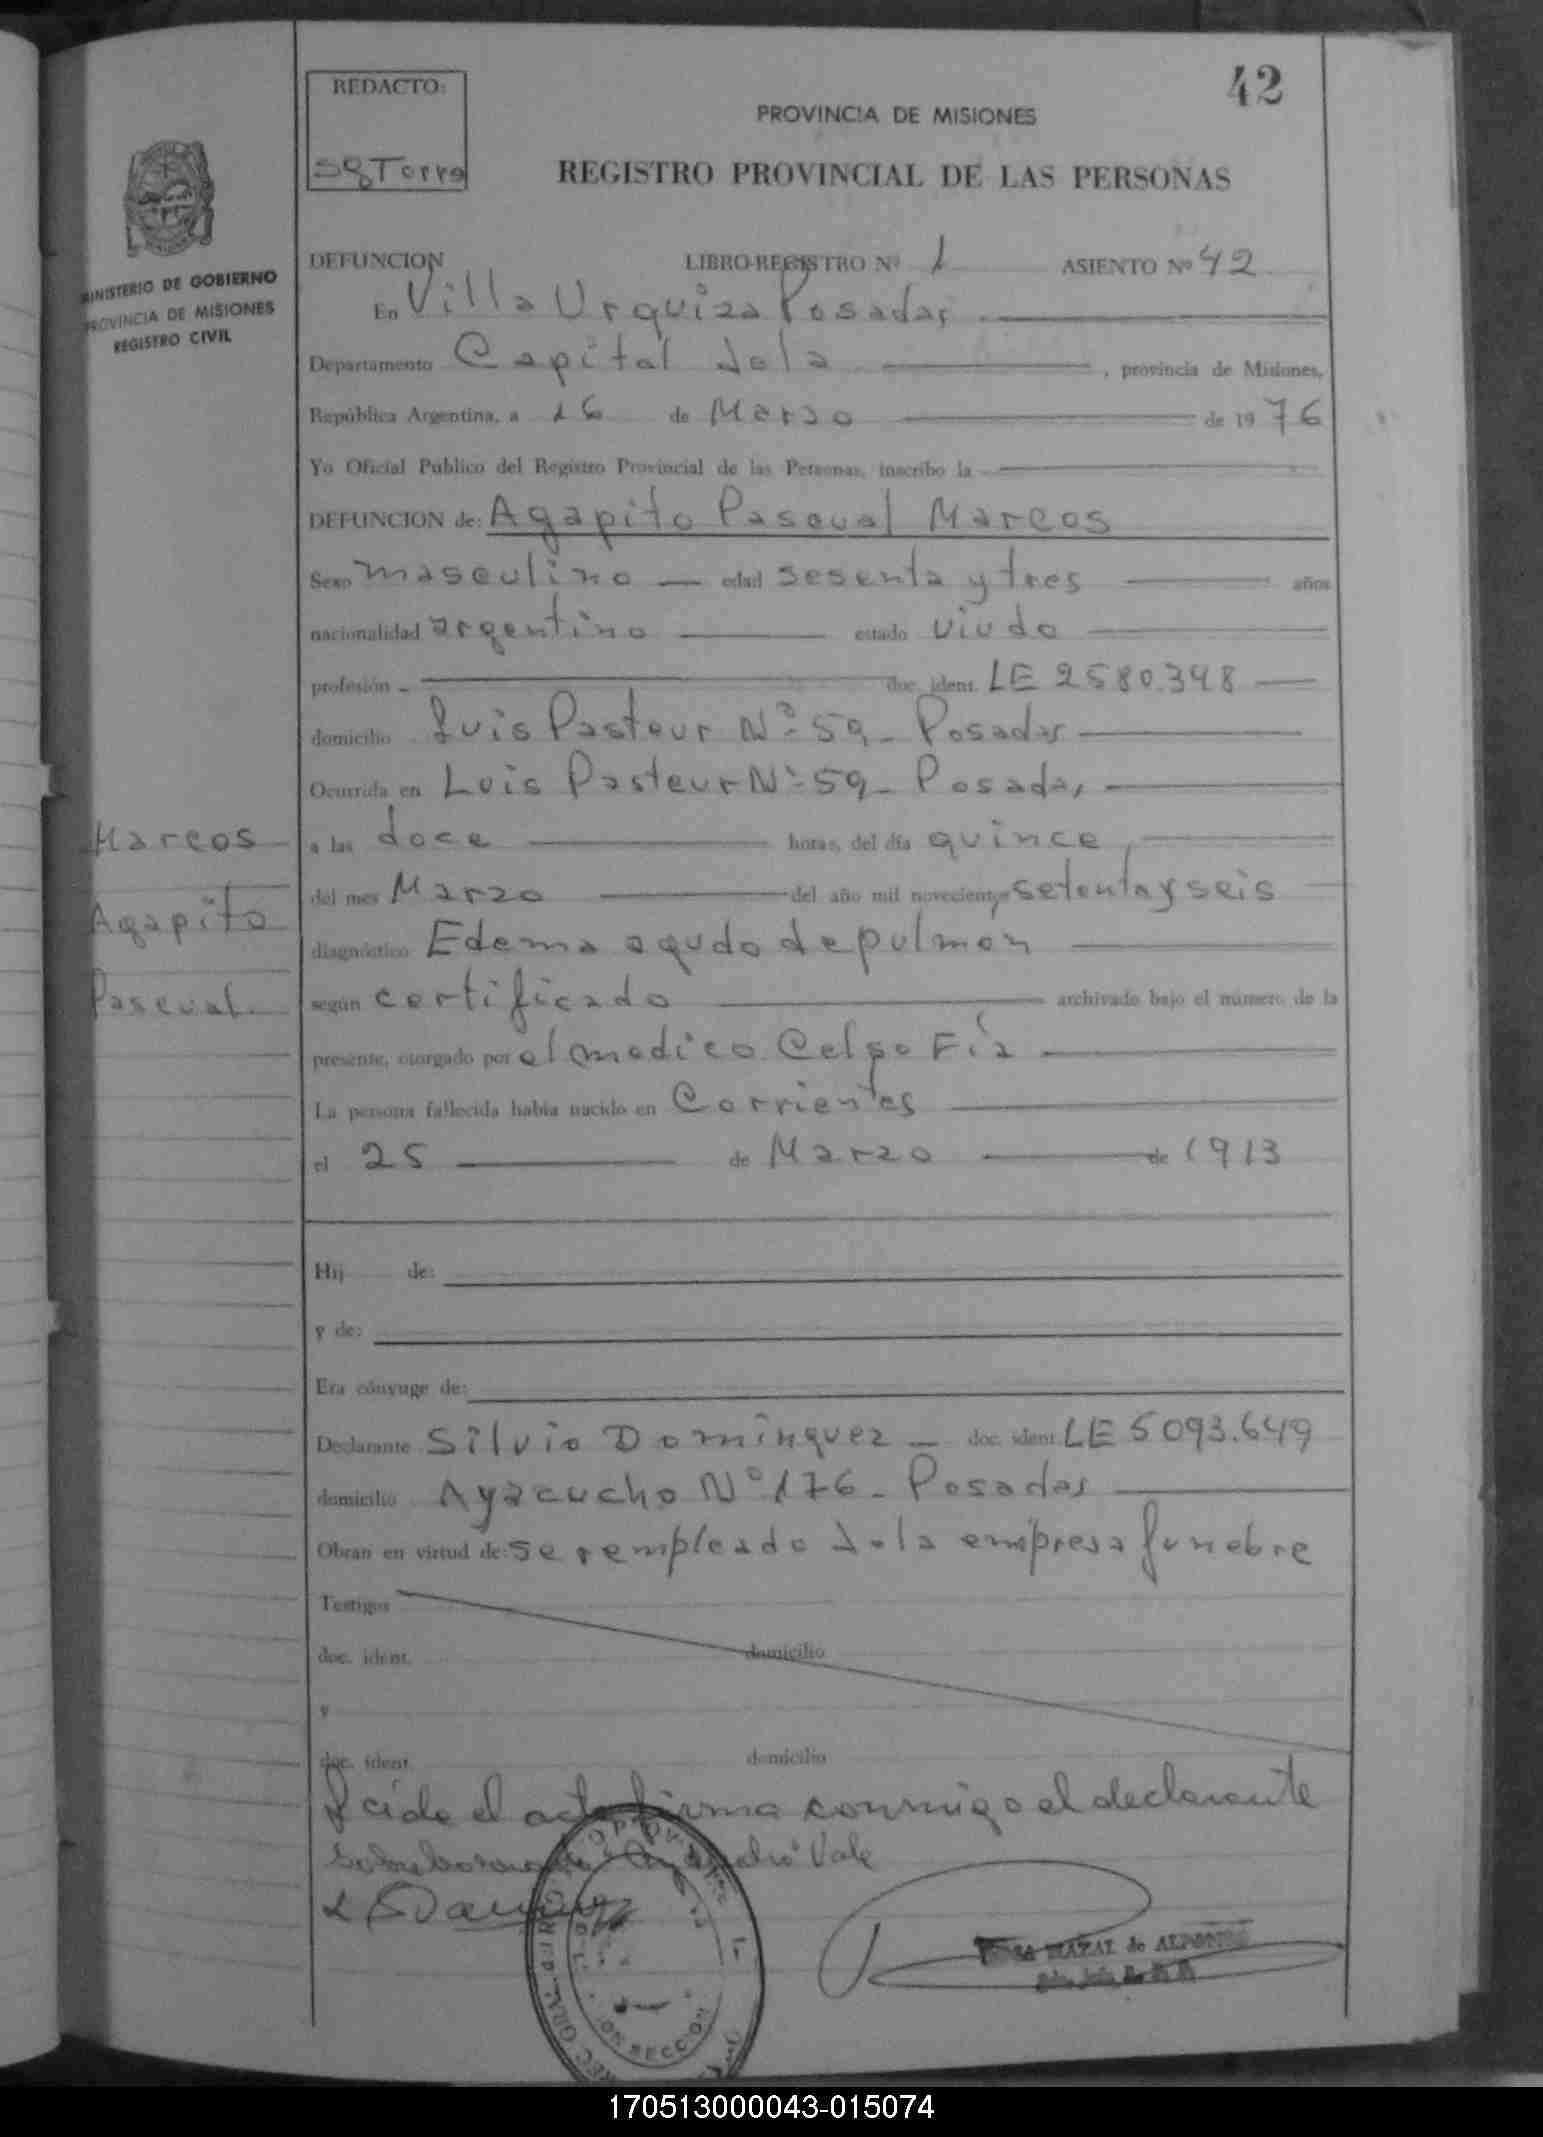 42
REDACTO:
PROVINCIA DE MISIONES
REGISTRO PROVINCIAL DE LAS PERSONAS
MINISTERIO DE GOBIERNO
PROVINCIA DE MISIONES
REGISTRO CIVIL
DEFUNCION LIBRO-REGISTRO Nº 1 ASIENTO Nº 42
En Villa Urquiza Posadas
Departamento Capital de la , provincia de Misiones,
República Argentina, a 16 de Marzo de 1976
Yo Oficial Público del Registro Provincial de las Personas, inscribo la
DEFUNCION de: Agapito Pascual Marcos
Sexo masculino edad sesenta y tres años
nacionalidad argentino estado viudo
profesión doc. ident. LE 2580.348
domicilio Luis Pasteur Nº 59 - Posadas
Ocurrida en Luis Pasteur Nº 59 - Posadas
Marcos
Agapito
Pascual.
a las doce horas, del día quince
del mes Marzo del año mil novecientos setenta y seis
diagnóstico Edema agudo de pulmon
según certificado archivado bajo el número de la
presente, otorgado por el medico Celso Fía
La persona fallecida había nacido en Corrientes
el 25 de Marzo de 1913
Hij de:
y de:
Era cónyuge de:
Declarante Silvio Dominguez - doc. ident. LE 5093.649
domicilio Ayacucho Nº 176 - Posadas
Obran en virtud de: ser empleado de la empresa funebre
Testigos
doc. ident. domicilio
y
doc. ident. domicilio
Leída el acta firma conmigo el declarante
Vale
de ALFONSO
SECCION
170513000043-015074